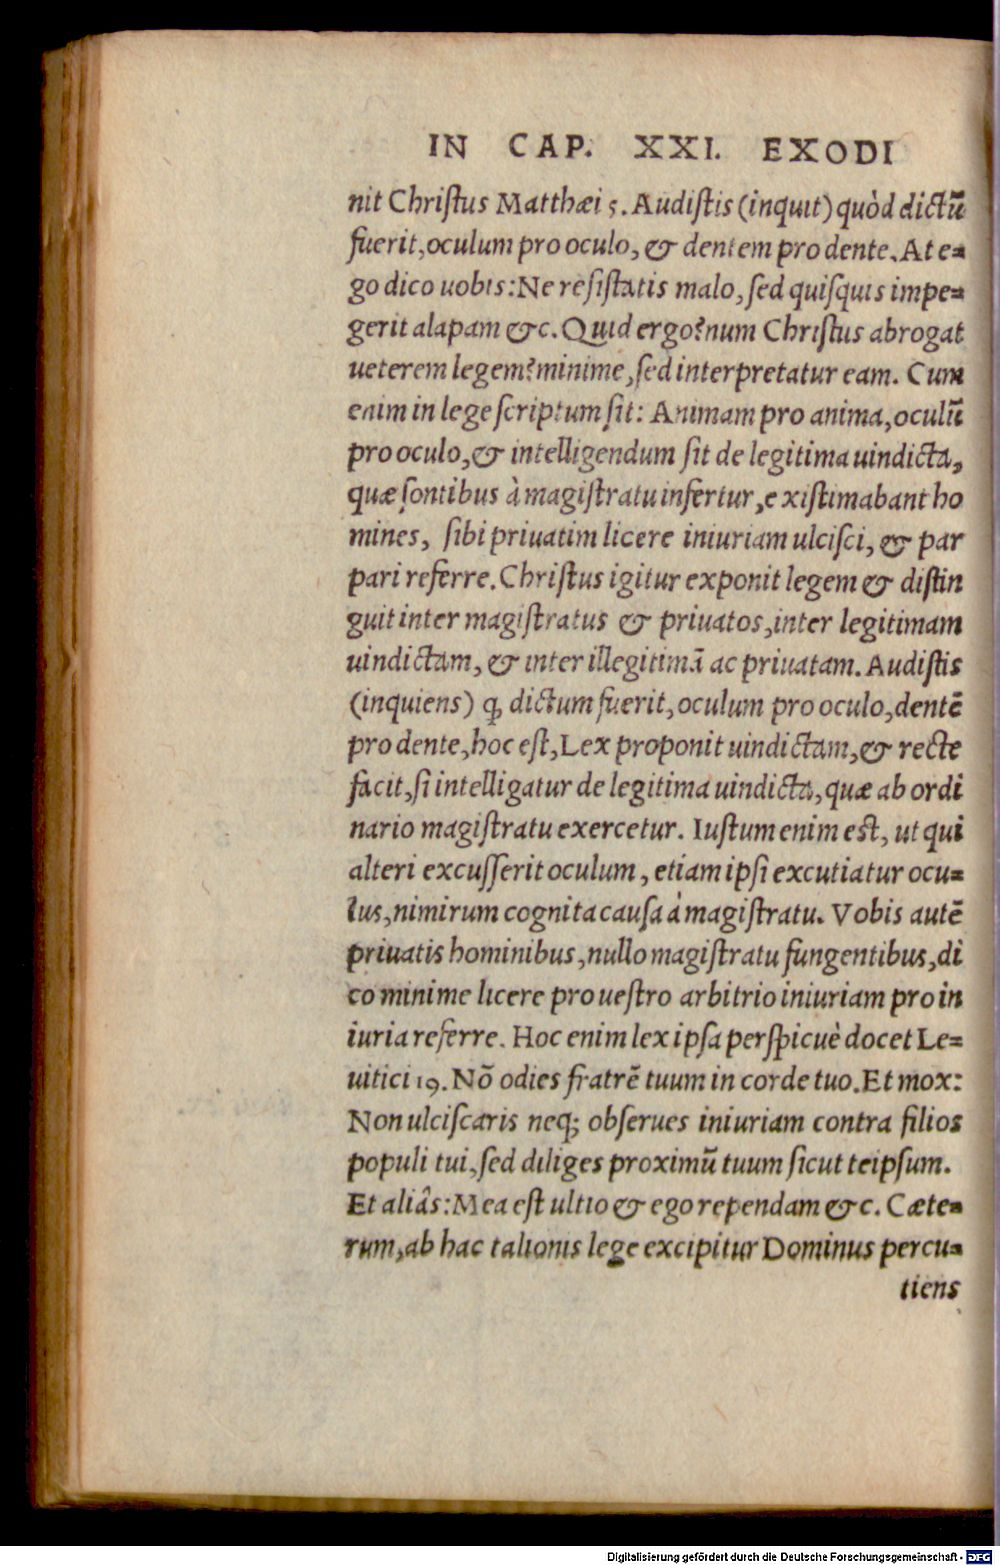 IN CAP. XXI. EXODI
nit Chriſtus Matthæi 5. Audiſtis (inquit) quòd dictũ
fuerit, oculum pro oculo, & dentem pro dente. At e=
go dico uobis: Ne reſiſtatis malo, ſed quiſquis impe=
gerit alapam &c. Quid ergo? num Chriſtus abrogat
ueterem legem? minime, ſed interpretatur eam. Cum
enim in lege ſcriptum ſit: Animam pro anima, oculũ
pro oculo, & intelligendum ſit de legitima uindicta,
quæ ſontibus à magiſtratu infertur, exiſtimabant ho
mines, ſibi priuatim licere iniuriam ulciſci, & par
pari referre. Chriſtus igitur exponit legem & diſtin
guit inter magiſtratus & priuatos, inter legitimam
uindictam, & inter illegitimã ac priuatam. Audiſtis
(inquiens) ꝙ dictum fuerit, oculum pro oculo, dentẽ
pro dente, hoc eſt, Lex proponit uindictam, & recte
facit, ſi intelligatur de legitima uindicta, quæ ab ordi
nario magiſtratu exercetur. Iuſtum enim eſt, ut qui
alteri excuſſerit oculum, etiam ipſi excutiatur ocu=
lus, nimirum cognita cauſa à magiſtratu. Vobis autẽ
priuatis hominibus, nullo magiſtratu fungentibus, di
co minime licere pro ueſtro arbitrio iniuriam pro in
iuria referre. Hoc enim lex ipſa perſpicuè docet Le=
uitici 19. Nõ odies fratrẽ tuum in corde tuo. Et mox:
Non ulciſcaris neq; obſerues iniuriam contra filios
populi tui, ſed diliges proximũ tuum ſicut teipſum.
Et aliâs: Mea eſt ultio & ego rependam &c. Cæte=
rum, ab hac talionis lege excipitur Dominus percu=
tiens
Digitalisierung gefördert durch die Deutsche Forschungsgemeinschaft - DFG